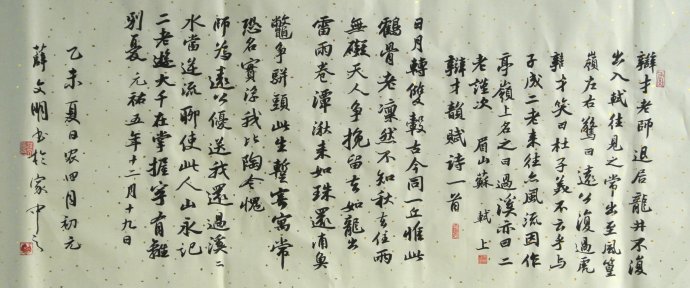 辯才老師退居龍井不復
出入軾往見之常出至風篁
嶺左右驚曰遠公復過虎
辯才笑曰杜子美不云乎与
子成二老来往亦風流因作
亭嶺上名之曰過溪亦曰二
老謹次 眉山蘇軾上
辯才韻賦詩一首
日月轉雙轂古今同一丘惟此
鶴骨老凜然不知秋去住兩
無礙天人争挽留去如龍出
雷雨卷潭湫来如珠還浦魚
鼈争駢頭此生暫寄寓常
恐名實浮我比陶令愧
師為遠公優送我還過溪〻
水當逆流聊使此人山永記
二老遊大千在掌握寧有離
别憂元祐五年十二月十九日
乙未夏日农四月初元
薛文明书於家中